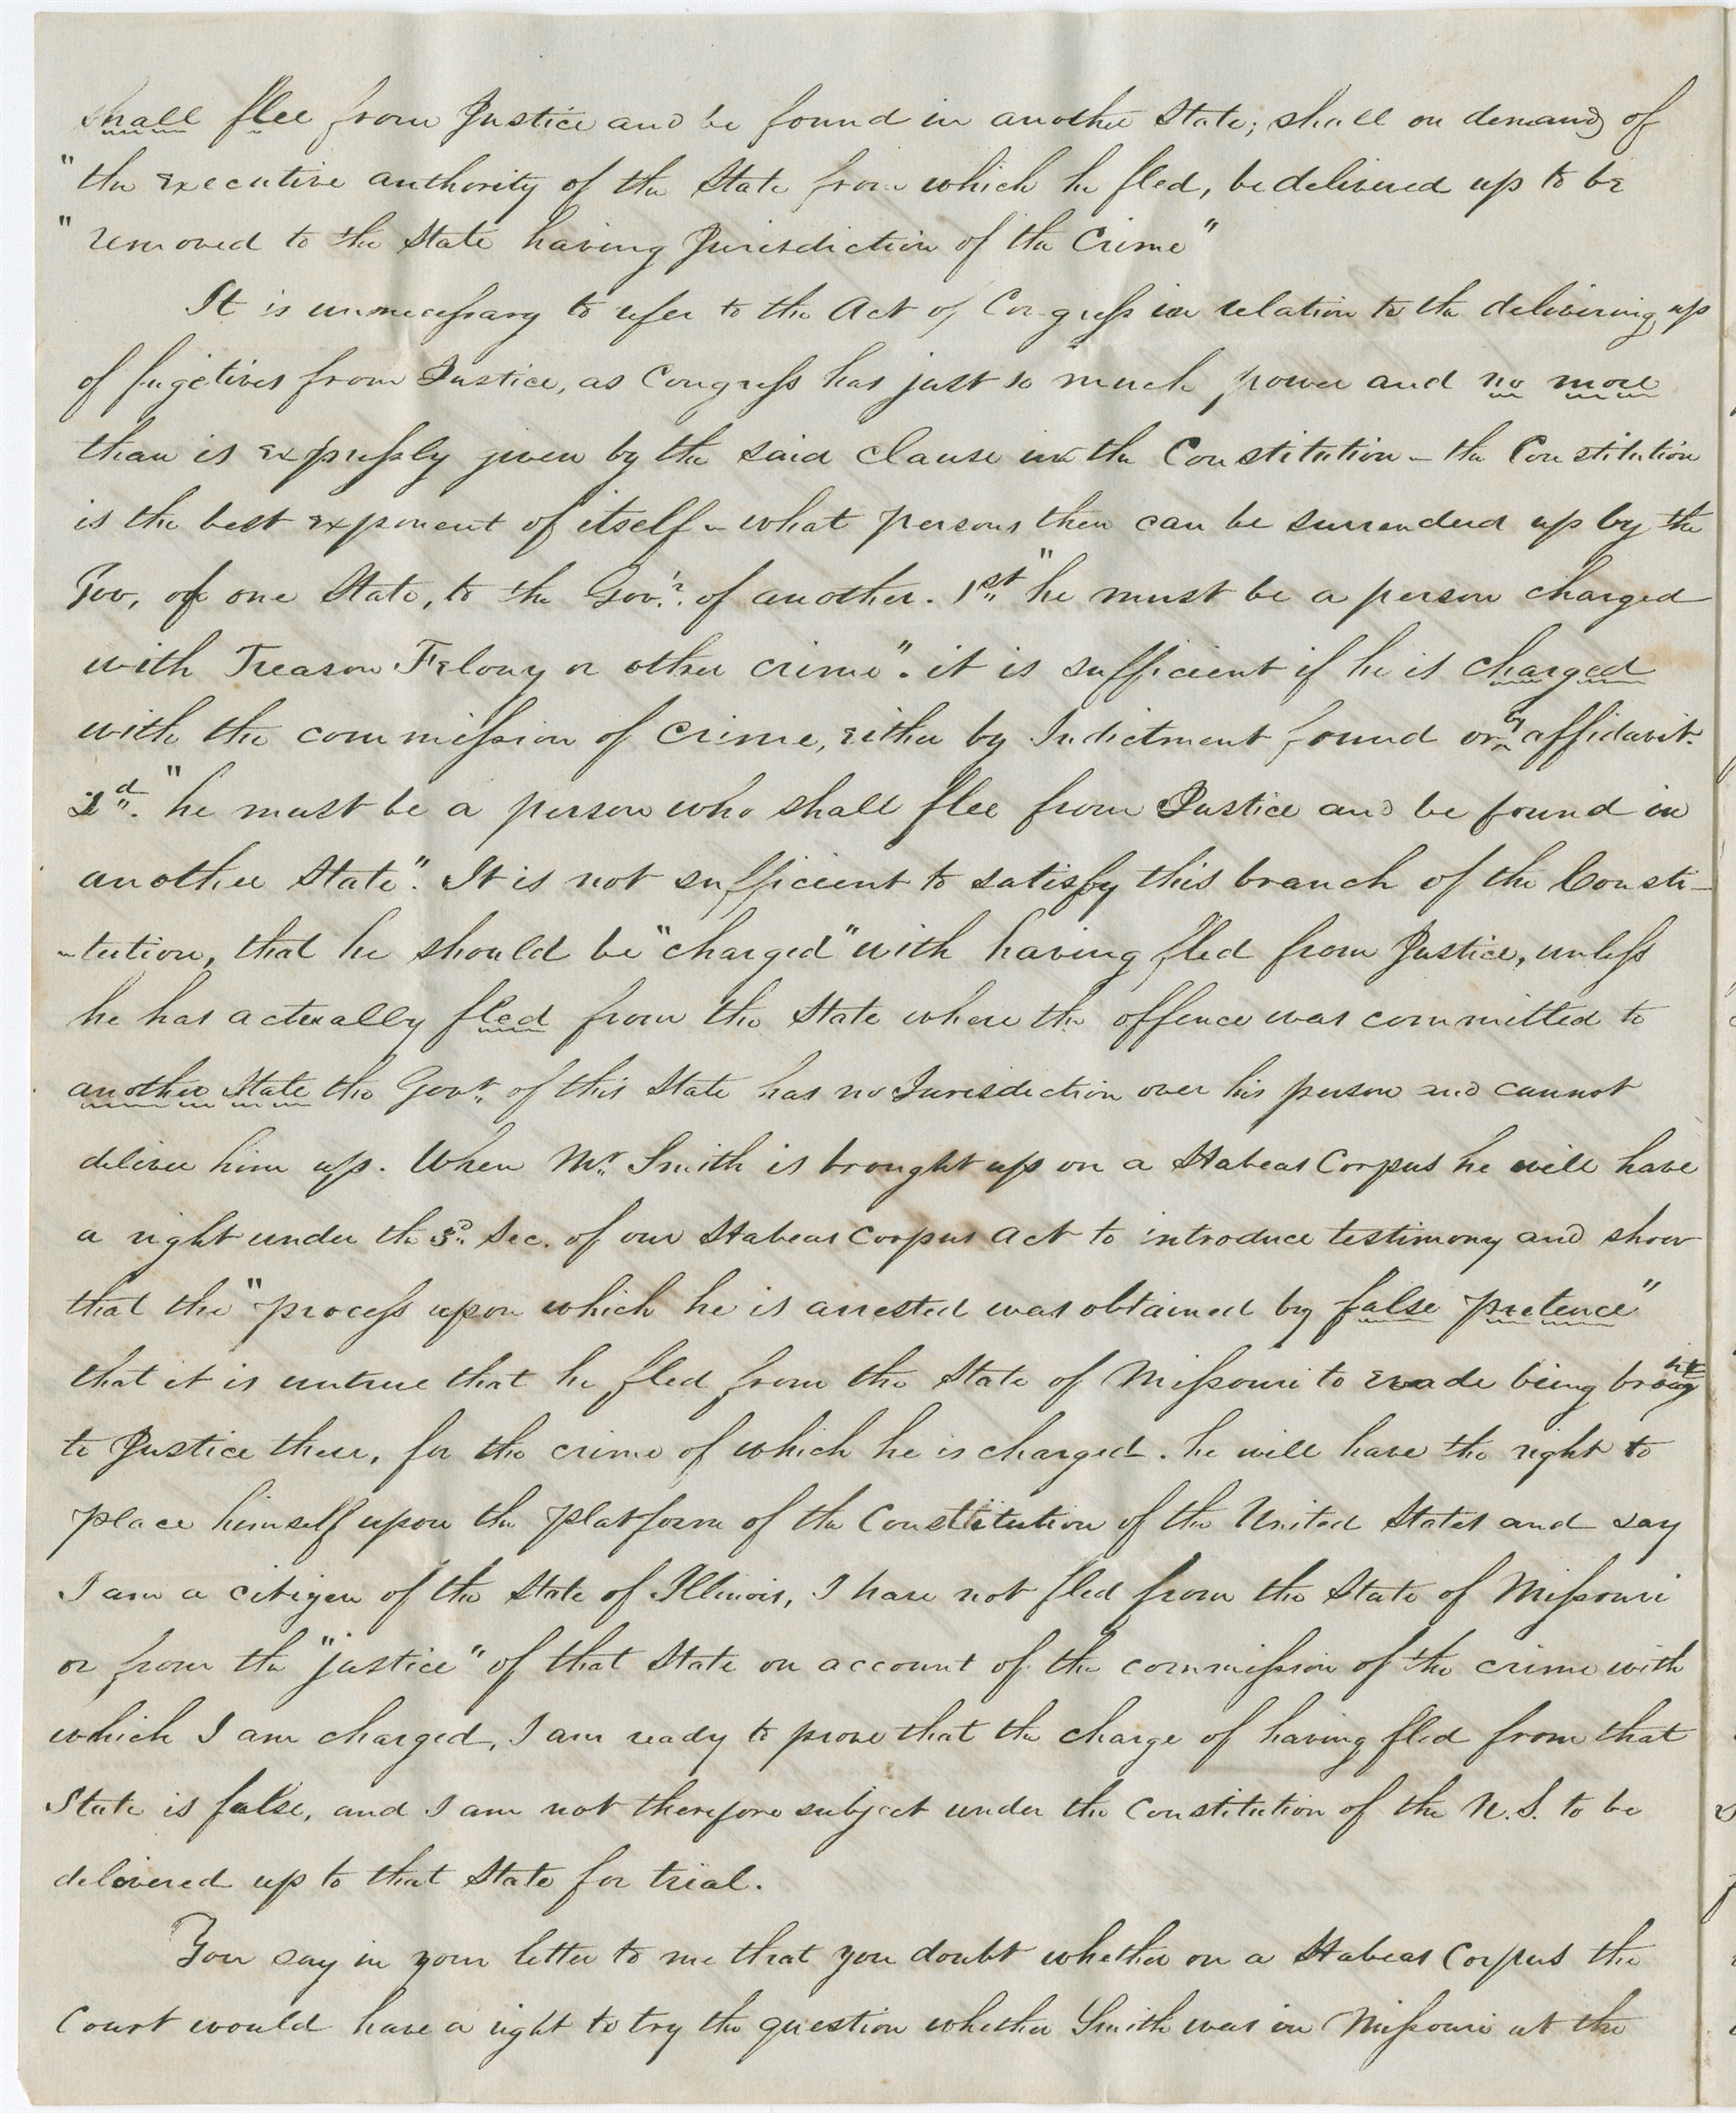 shall flee from Justice and be found in another State; shall on demand of
"the executive authority of the State from which he fled, be delivered up to be
"removed to the State having Jurisdiction of the Crime"
It is unnecessary to refer to the Act of Congress in relation to the delivering up
of fugetives from Justice, as Congress has just so much power and no more
than is expressly given by the said Clause in the Constitution – the Constitution
is the best exponent of itself – what persons then can be surrendered up by the
Gov, of one State, to the Govr. of another. 1st "he must be a person charged
with Treason Felony or other crime". it is sufficient if he is charged
with the commission of crime, either by Indictment found or by affidavit.
2d. "he must be a person who shall flee from Justice and be found in
another State". It is not sufficient to satisfy this branch of the Consti-
-tution, that he should be "charged" with having fled from Justice, unless
he has actually fled from the State where the offence was committed to
another State the Govr. of this State has no Jurisdiction over his person and cannot
deliver him up. When Mr. Smith is brought up on a Habeas Corpus he will have
a right under the 3d. Sec. of our Habeas Corpus Act to introduce testimony and show
that the "process upon which he is arrested was obtained by false pretence"
that it is untrue that he fled from the State of Missouri to evade being brought
to Justice there, for the crime of which he is charged. he will have the right to
place himself upon the platform of the Constitution of the United States and say
I am a citizen of the State of Illinois, I have not fled from the State of Missouri
or from the "justice" of that State on account of the commission of the crime with
which I am charged, I am ready to prove that the charge of having fled from that
State is false, and I am not therefore subject under the Constitution of the U.S. to be
delivered up to that State for trial.
You say in your letter to me that you doubt whether on a Habeas Corpus the
Court would have a right to try the question whether Smith was in Missouri at the